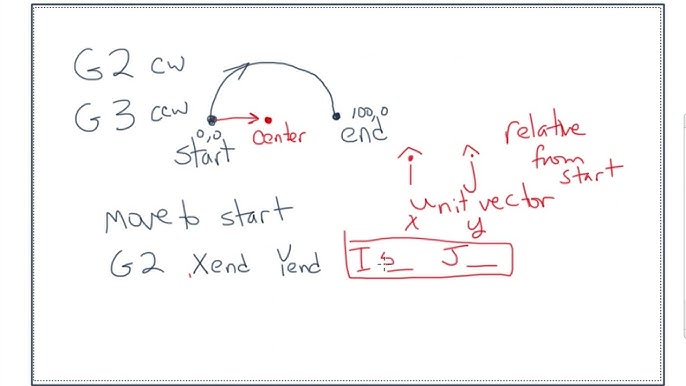 G2 cw
G3 ccw
0,0
start
center
100,0
end
relative
from
start
î ĵ
unit vector
x y
move to start
G2 Xend Yend I __ J __